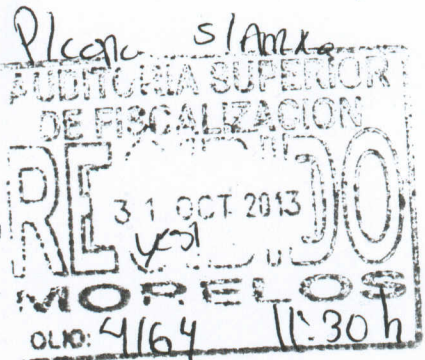 P/copia S/Anexo
AUDITORIA SUPERIOR
DE FISCALIZACION
RECIBIDO
31 OCT 2013
MORELOS
OLIO: 4164 11:30 h